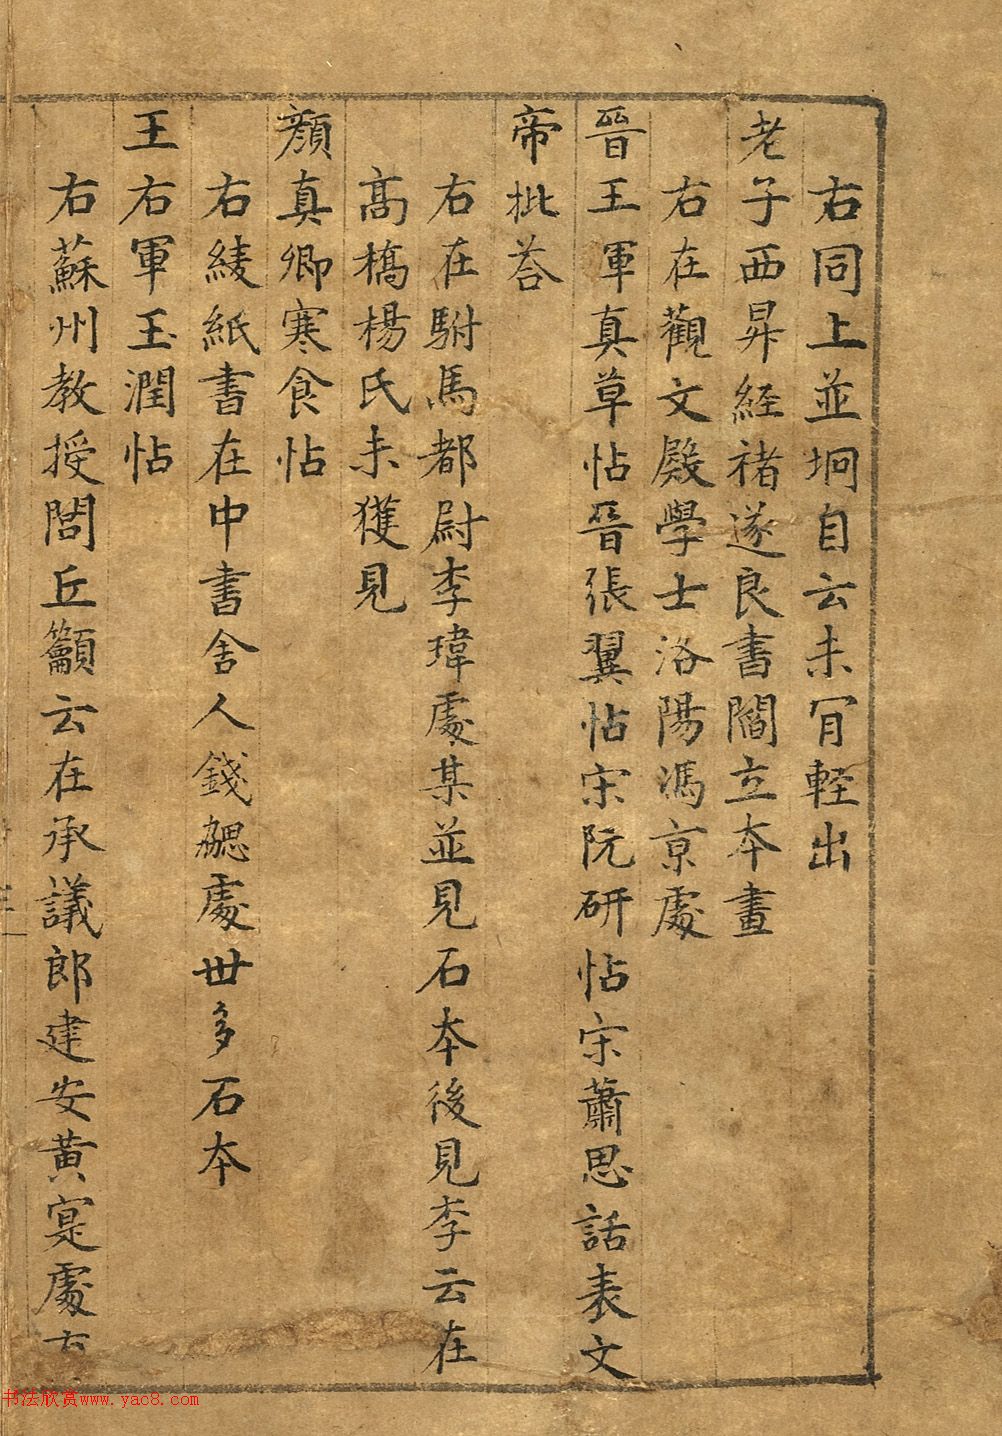 右同上並坰自云未肎輕出
老子西昇経禇遂良書閻立夲畫
右在觀文殿學士洛陽馮京處
晉王軍真草帖晉張翼帖宋阮研帖宋蕭思話表文
帝批荅
右在駙馬都尉李瑋處某並見石夲後見李云在
髙橋楊氏未獲見
顔真卿寒食帖
右綾紙書在中書舍人錢勰處丗多石夲
王右軍玉潤帖
右蘇州教授閭丘籲云在承議郎建安黄寔處
书法欣赏www.yac8.com